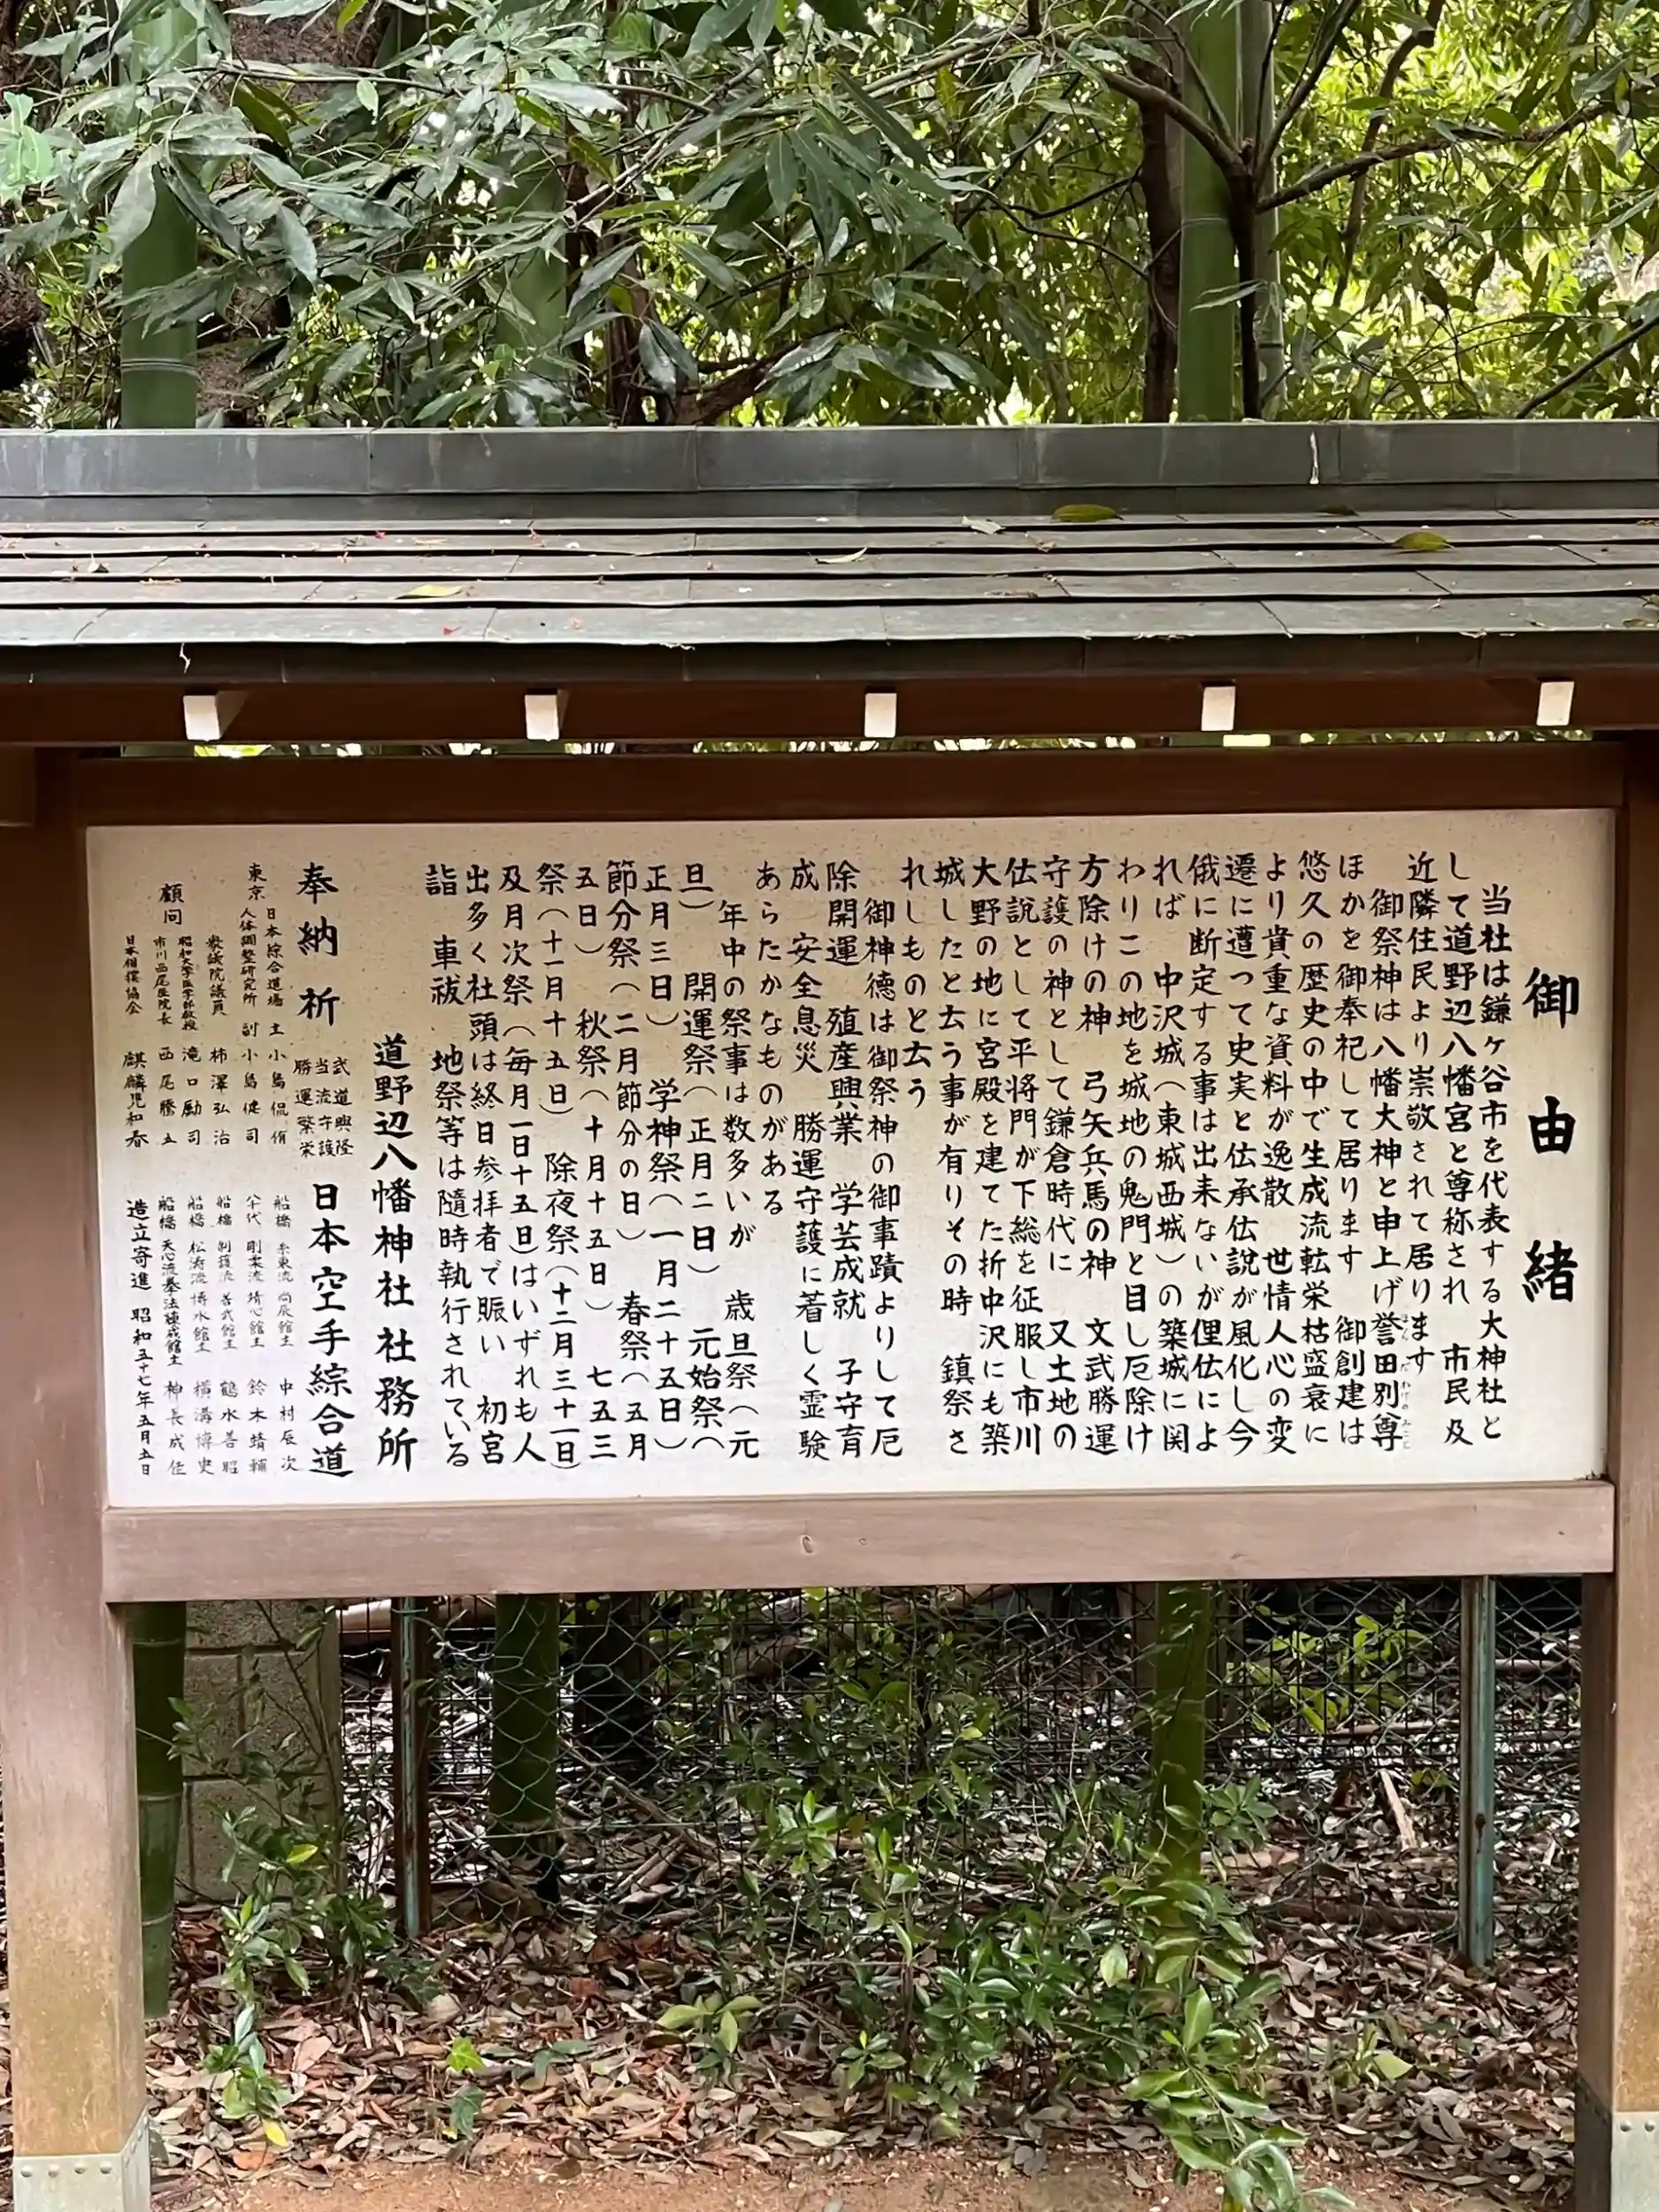 御由緒
当社は鎌ヶ谷市を代表する大神社と
して道野辺八幡宮と尊称され 市民及
近隣住民より崇敬されて居ります
御祭神は八幡大神と申上げ誉田別尊
ほかを御奉祀して居ります 御創建は
悠久の歴史の中で生成流転栄枯盛衰に
より貴重な資料が逸散 世情人心の変
遷に遭つて史実と伝承伝説が風化し今
俄に断定する事は出来ないが俚伝によ
れば 中沢城(東城西城)の築城に関
わりこの地を城地の鬼門と目し厄除け
方除けの神 弓矢兵馬の神 文武勝運
守護の神として鎌倉時代に 又土地の
伝説として平将門が下総を征服し市川
大野の地に宮殿を建てた折中沢にも築
城したと云う事が有りその時 鎮祭さ
れしものと云う
御神徳は御祭神の御事蹟よりして厄
除開運 殖産興業 学芸成就 子守育
成 安全息災 勝運守護に着しく霊験
あらたかなものがある
年中の祭事は数多いが 歳旦祭(元
旦) 開運祭(正月二日) 元始祭(
正月三日) 学神祭(一月二十五日)
節分祭(二月節分の日) 春祭(五月
五日) 秋祭(十月十五日) 七五三
祭(十一月十五日) 除夜祭(十二月三十一日)
及月次祭(毎月一日十五日)はいずれも人
出多く社頭は終日参拝者で賑い 初宮
詣 車祓 地祭等は隨時執行されている
道野辺八幡神社社務所
奉納祈 武道興隆 当流守護 勝運繁栄 日本空手綜合道
日本綜合道場主 小島侃脩
東京 人体調整研究所 副 小島健司
衆議院議員 柿澤弘治
顧問 昭和大学医学部教授 滝口勵司
市川西尾医院長 西尾騰五
日本相撲協会 麒麟児和春
船橋 糸東流 尚辰館主 中村辰次
八千代 剛柔流 靖心館主 鈴木靖輔
船橋 制護流 善武館主 鶴水善昭
船橋 松涛流 博水館主 横溝博史
船橋 天心流拳法極成館主 神長成佐
造立寄進 昭和五十七年五月五日